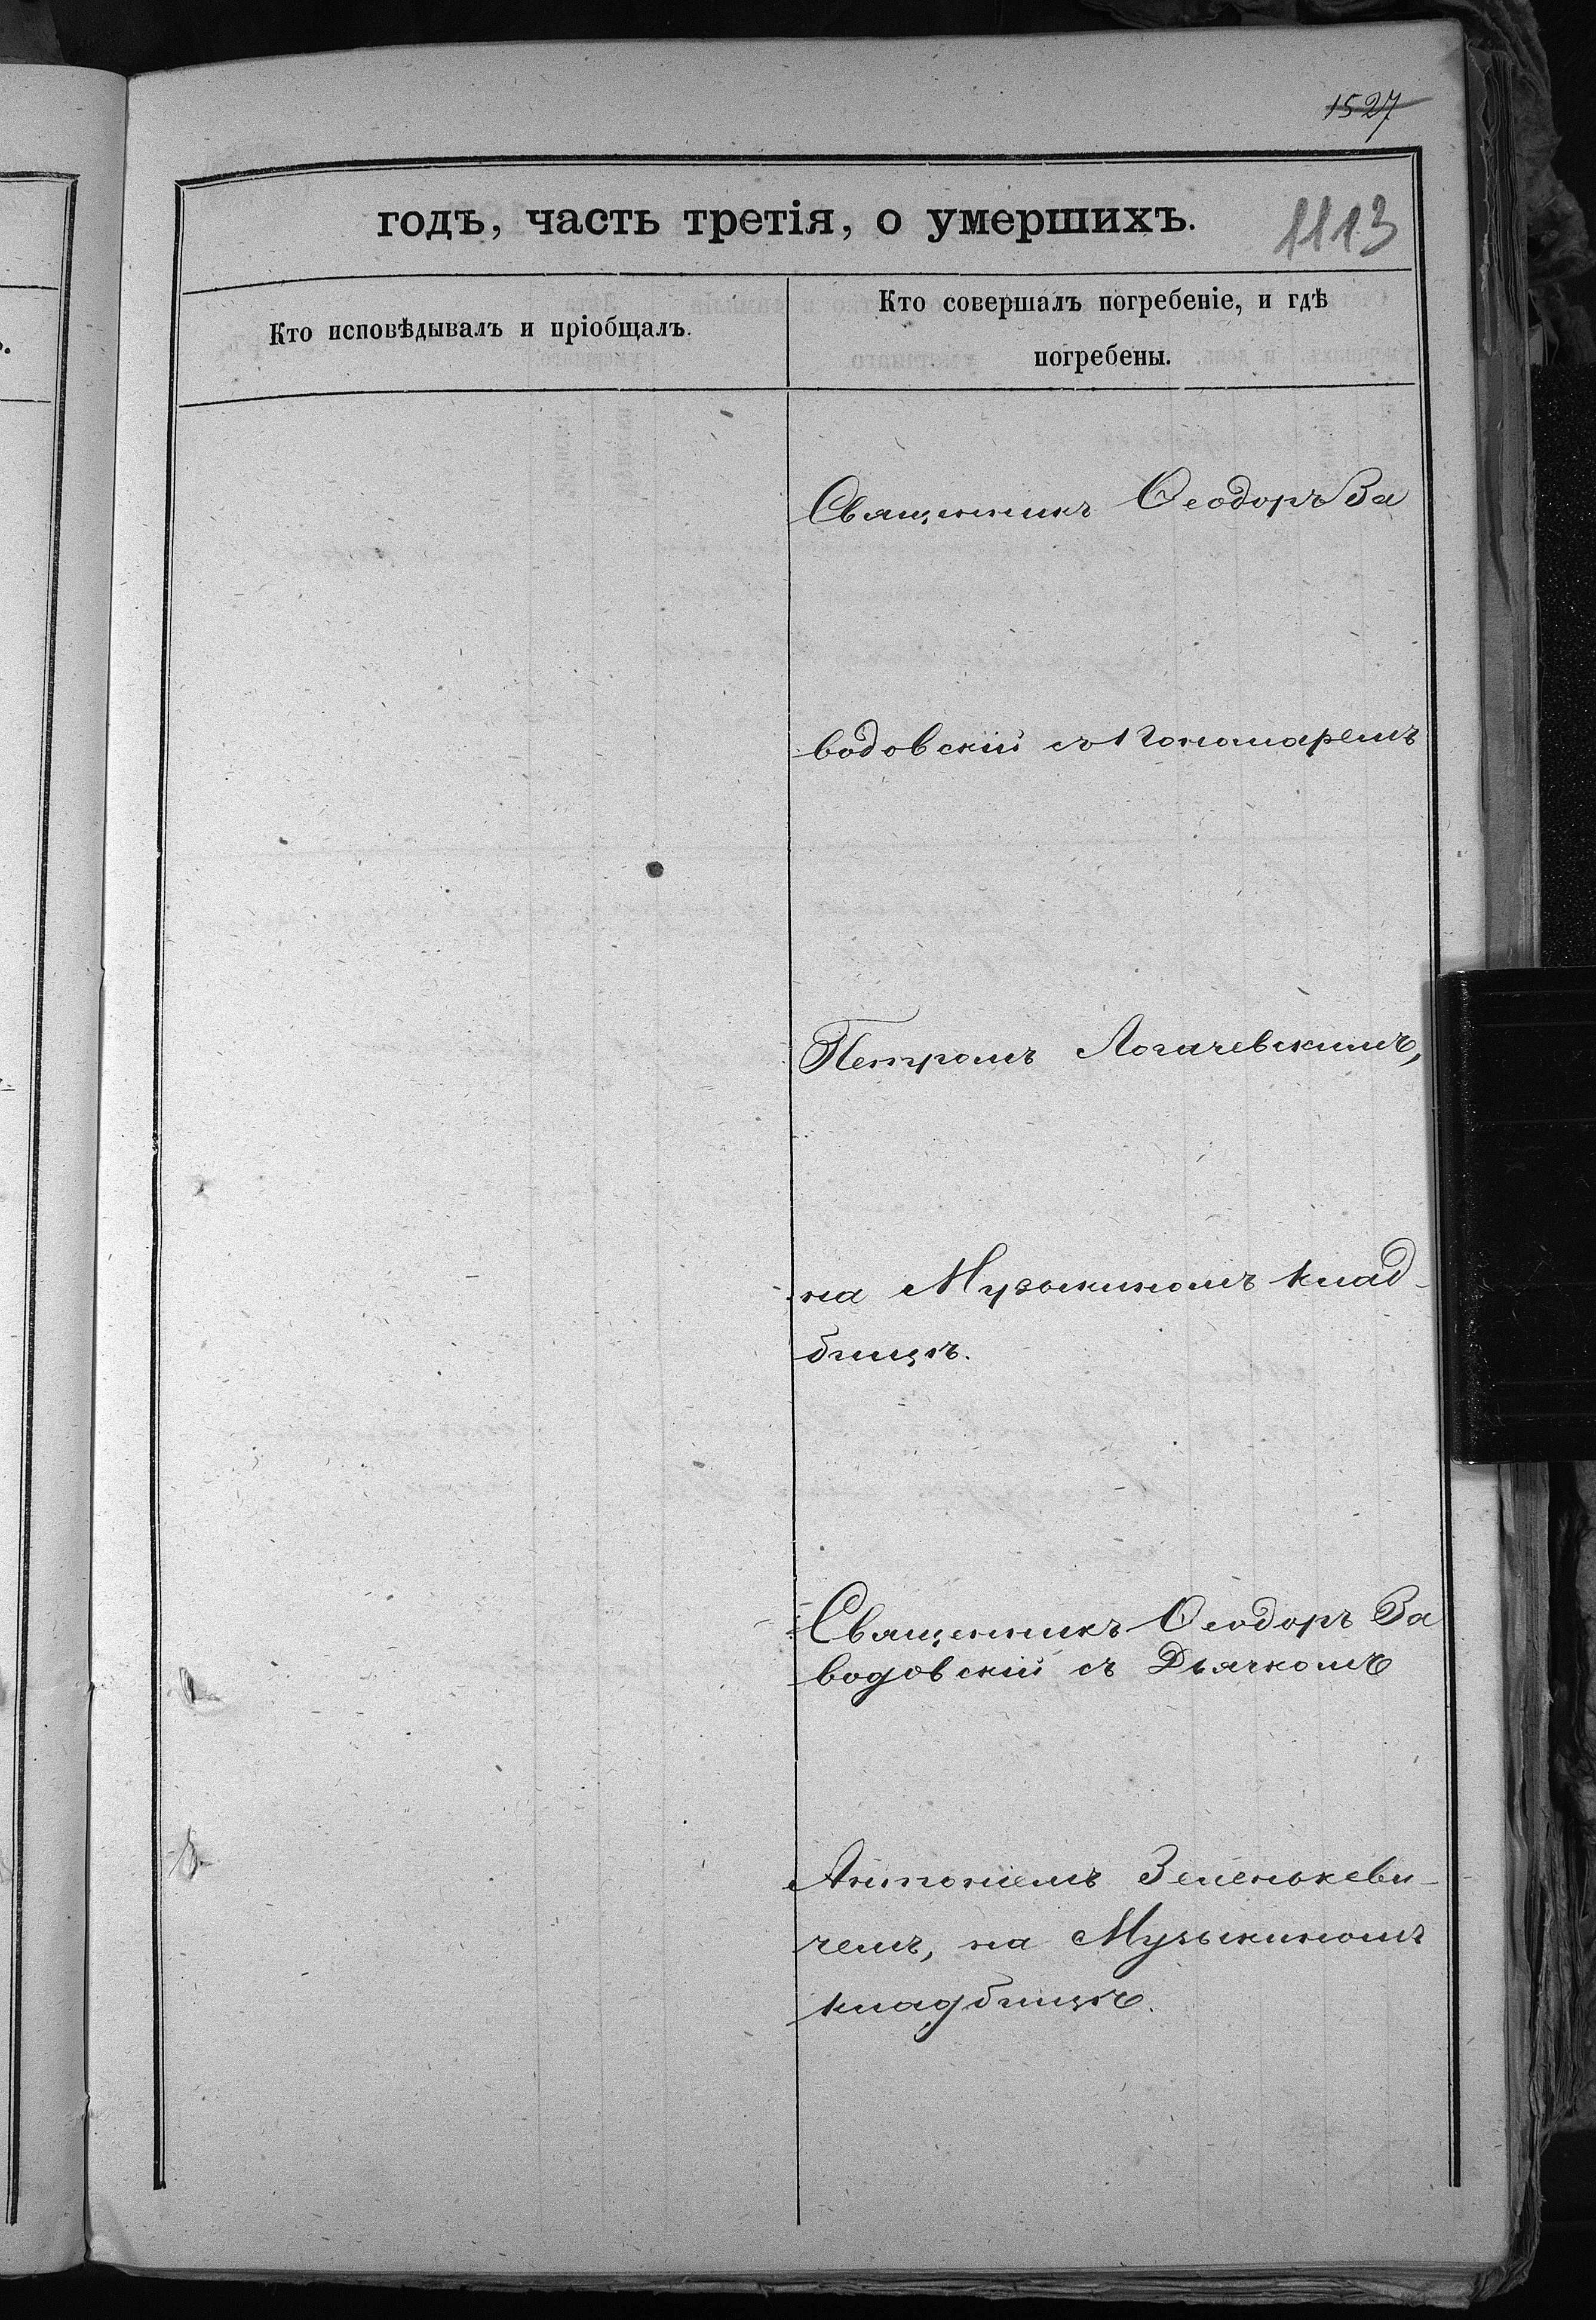 1527
годъ, часть третія, о умершихъ.
1113
Кто исповѣдывалъ и пріобщалъ.
Кто совершалъ погребеніе, и гдѣ
погребены.
Священникъ Ѳеодоръ За
водовскій съ Пономаремъ
Петромъ Логачевскимъ,
на Музыкиномъ клад-
бищѣ.
Священникъ Ѳеодоръ За
водовскій съ Дьячкомъ
Антоніемъ Зеленькеви-
чемъ, на Музыкиномъ
кладбищѣ.